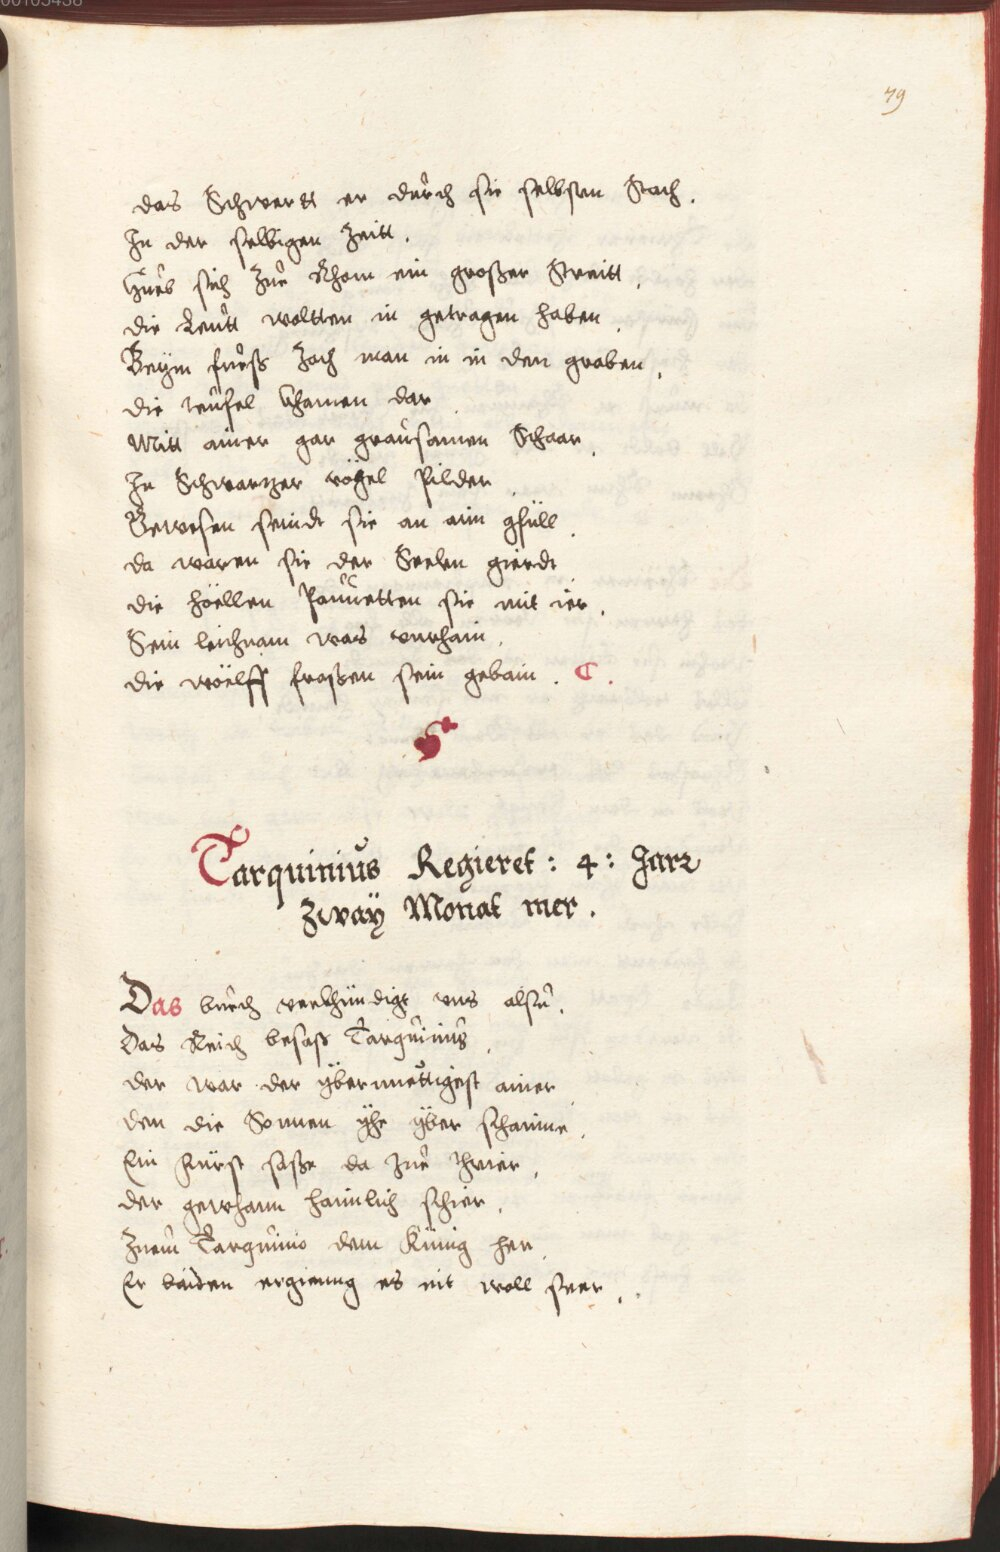 00105458
79
das Schwertt er durch sie selbsten Stach.
In der selbigen Zeitt.
Hueb sich Zue Rhom ein großer Streitt,
die Leutt woltten in getragen haben,
Beÿm fueß Zoch man in in den graben,
die teufel khamen dar,
Mitt ainer gar grausamen Schaar,
In Schwartzer vögel Pilder,
Gewesen seindt sie an aim gfüll,
da waren sie der Seelen gierdt
die höellen Pauuetten sie mit ier,
Sein leichnam was vnrhain,
die wöelff fraßen sein gebain. C.
Tarquinius Regieret: 4: Jarz
Zwaÿ Monat mer.
Das buech verkhündigt vns alsu,
Das Reich besaß Tarquinius,
der war der ÿbermuettigest ainer
den die Sonnen ÿhe ÿber schainne,
Ein Fürst saße da Zue Thrier,
der gewhann haimlich schier,
Zuem Tarquinio dem Künig her,
Er baiden ergienng es nit woll seer,